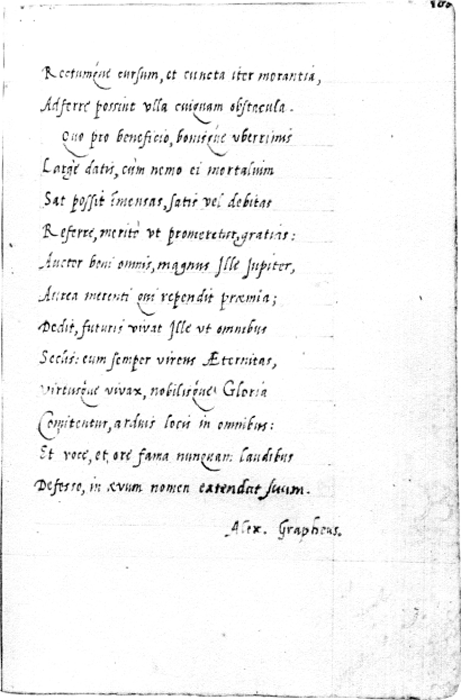 Rectumque cursum, et cuncta iter morantia,
Adferre possint vlla cuiquam obstacula.
Quo pro beneficio, bonisque vberrimis
Large datis, cùm nemo ei mortalium
Sat possit īmensas, satis vel debitas
Referre, meritò vt promeretur, gratias:
Auctor boni omnis, magnus Ille Jupiter,
Aurea merenti qui rependit præmia;
Dedit, futuris vivat Ille vt omnibus
Seclis: eum semper virens Æternitas,
Virtusque vivax, nobilisque Gloria
Comitentur, arduis locis in omnibus:
Et voce, et ore fama nunquam laudibus
Defesso, in ævum nomen extendat suum.
Alex. Grapheus.